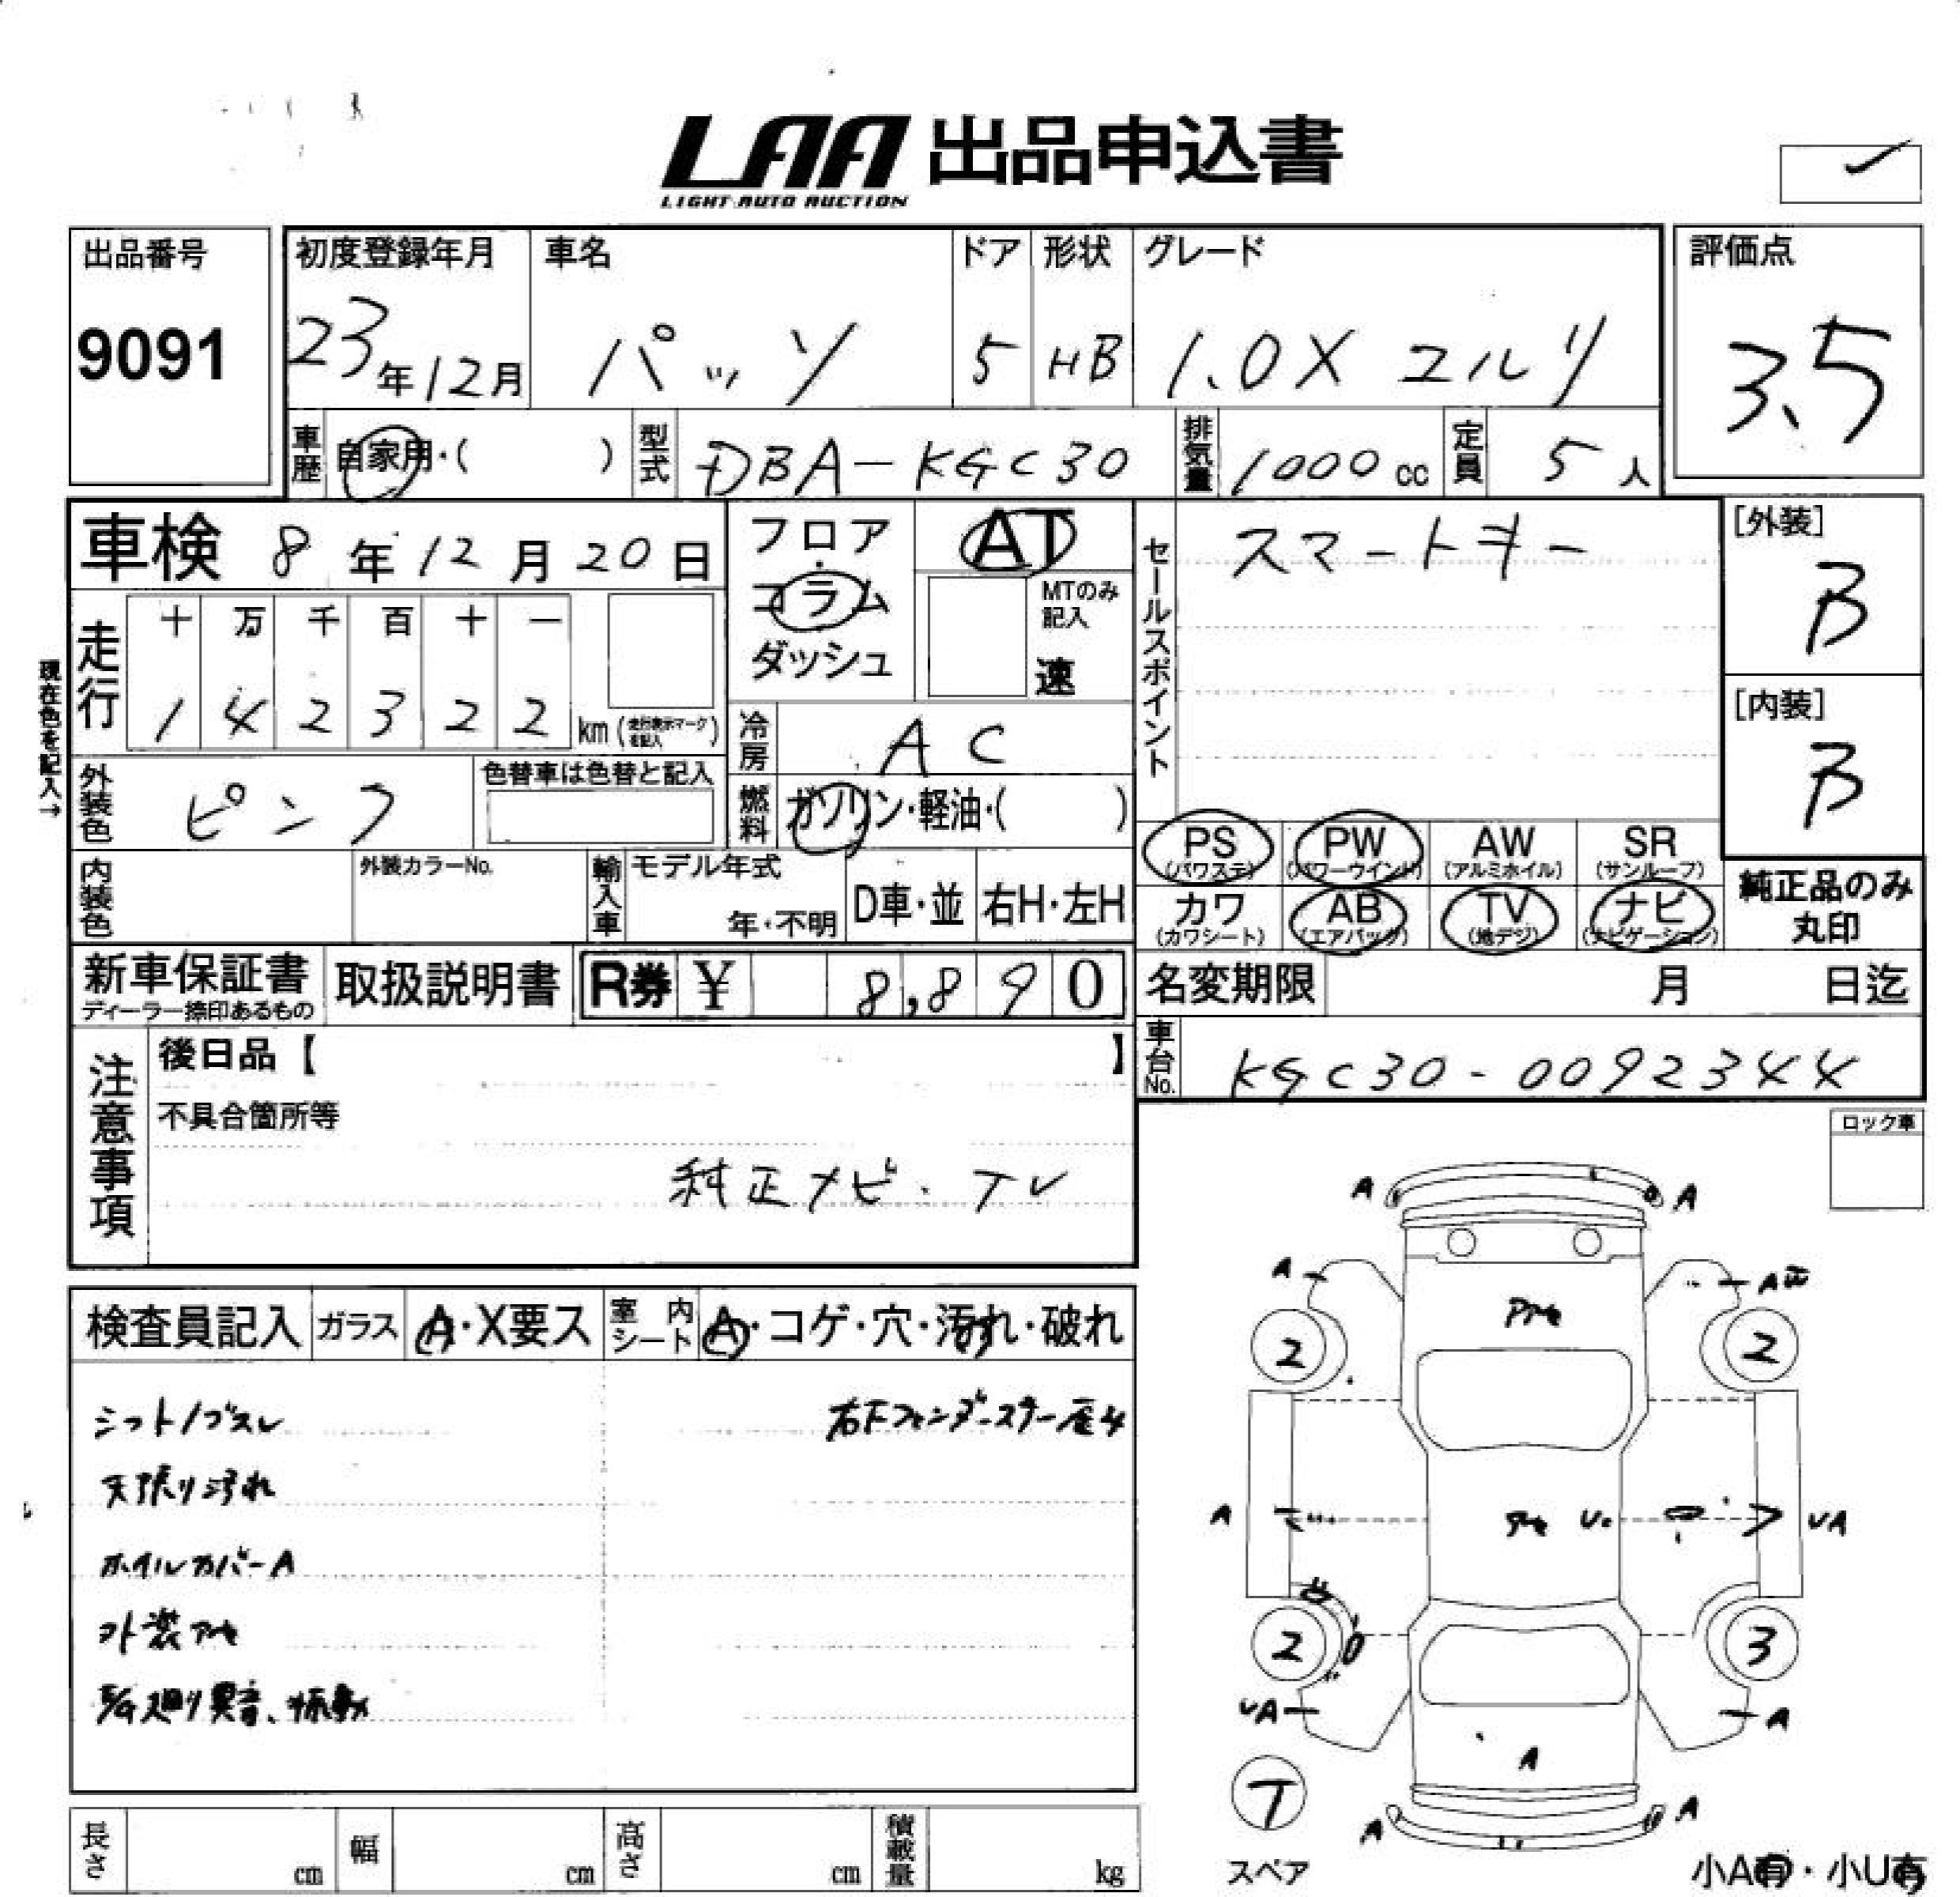 LAA 出品申込書
LIGHT AUTO AUCTION
出品番号
9091
初度登録年月
23年12月
車名
パッソ
ドア
5
形状
HB
グレード
1.0X ユルリ
評価点
3.5
車歴 自家用・( )
型式 DBA-KGC30
排気量 1000 cc
定員 5人
車検 8年12月20日
フロア・
コラム
ダッシュ
AT
MTのみ
記入
速
セールスポイント
スマートキー
[外装]
B
[内装]
B
現在色を記入→
走行
十 万 千 百 十 一
1 4 2 3 2 2 km (走行表示マークを記入)
冷房 AC
外装色 ピンク
色替車は色替と記入
燃料 ガソリン・軽油・( )
PS (パワステ)
PW (パワーウインド)
AW (アルミホイル)
SR (サンルーフ)
カワ (カワシート)
AB (エアバック)
TV (地デジ)
ナビ (ナビゲーション)
純正品のみ
丸印
内装色
外装カラーNo.
輸入車
モデル年式
年・不明
D車・並
右H・左H
新車保証書
ディーラー捺印あるもの
取扱説明書
R券 ¥ 8,890
名変期限 月 日迄
車台No. KGC30-0092344
注意事項
後日品【 】
不具合箇所等
純正ナビ・TV
ロック車
検査員記入
ガラス A・X要ス
室内シート A・コゲ・穴・汚れ・破れ
シフトノブスレ
天張り汚れ
ホイルカバーA
外装アセ
E/G廻り異音、振動
A A
A A
2 2
A U VA
2 3
VA A
A
A A
T
スペア
長さ cm
幅 cm
高さ cm
積載量 kg
小A有・小U有